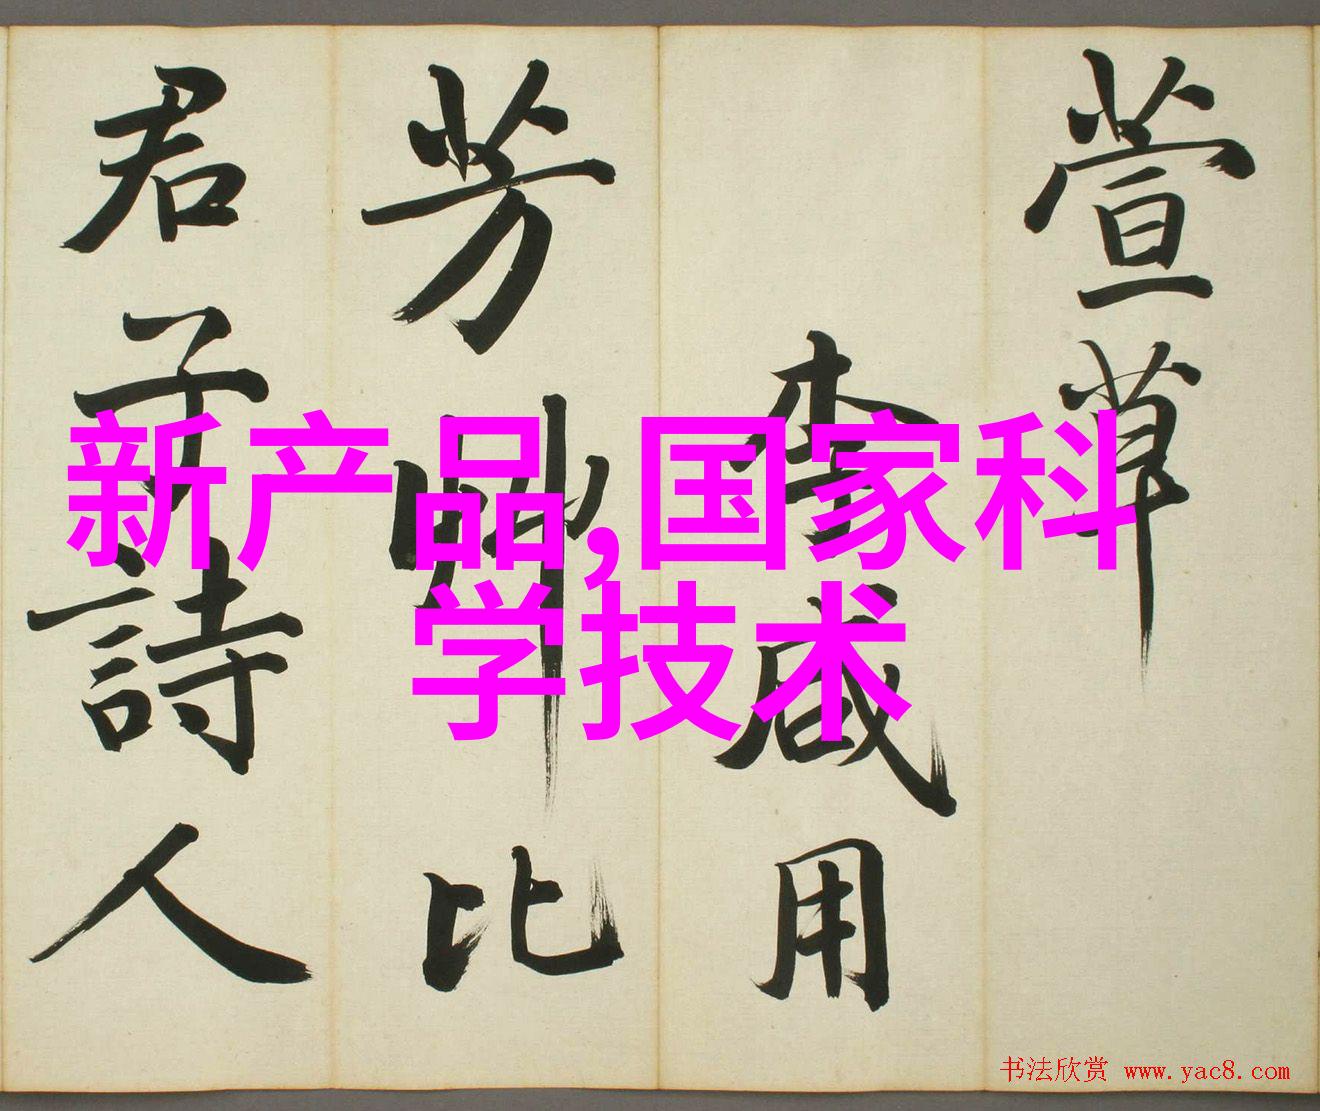 萱草
李咸用
芳草比
君子詩人
新产品,国家科
学技术
书法欣赏 www.yac8.com